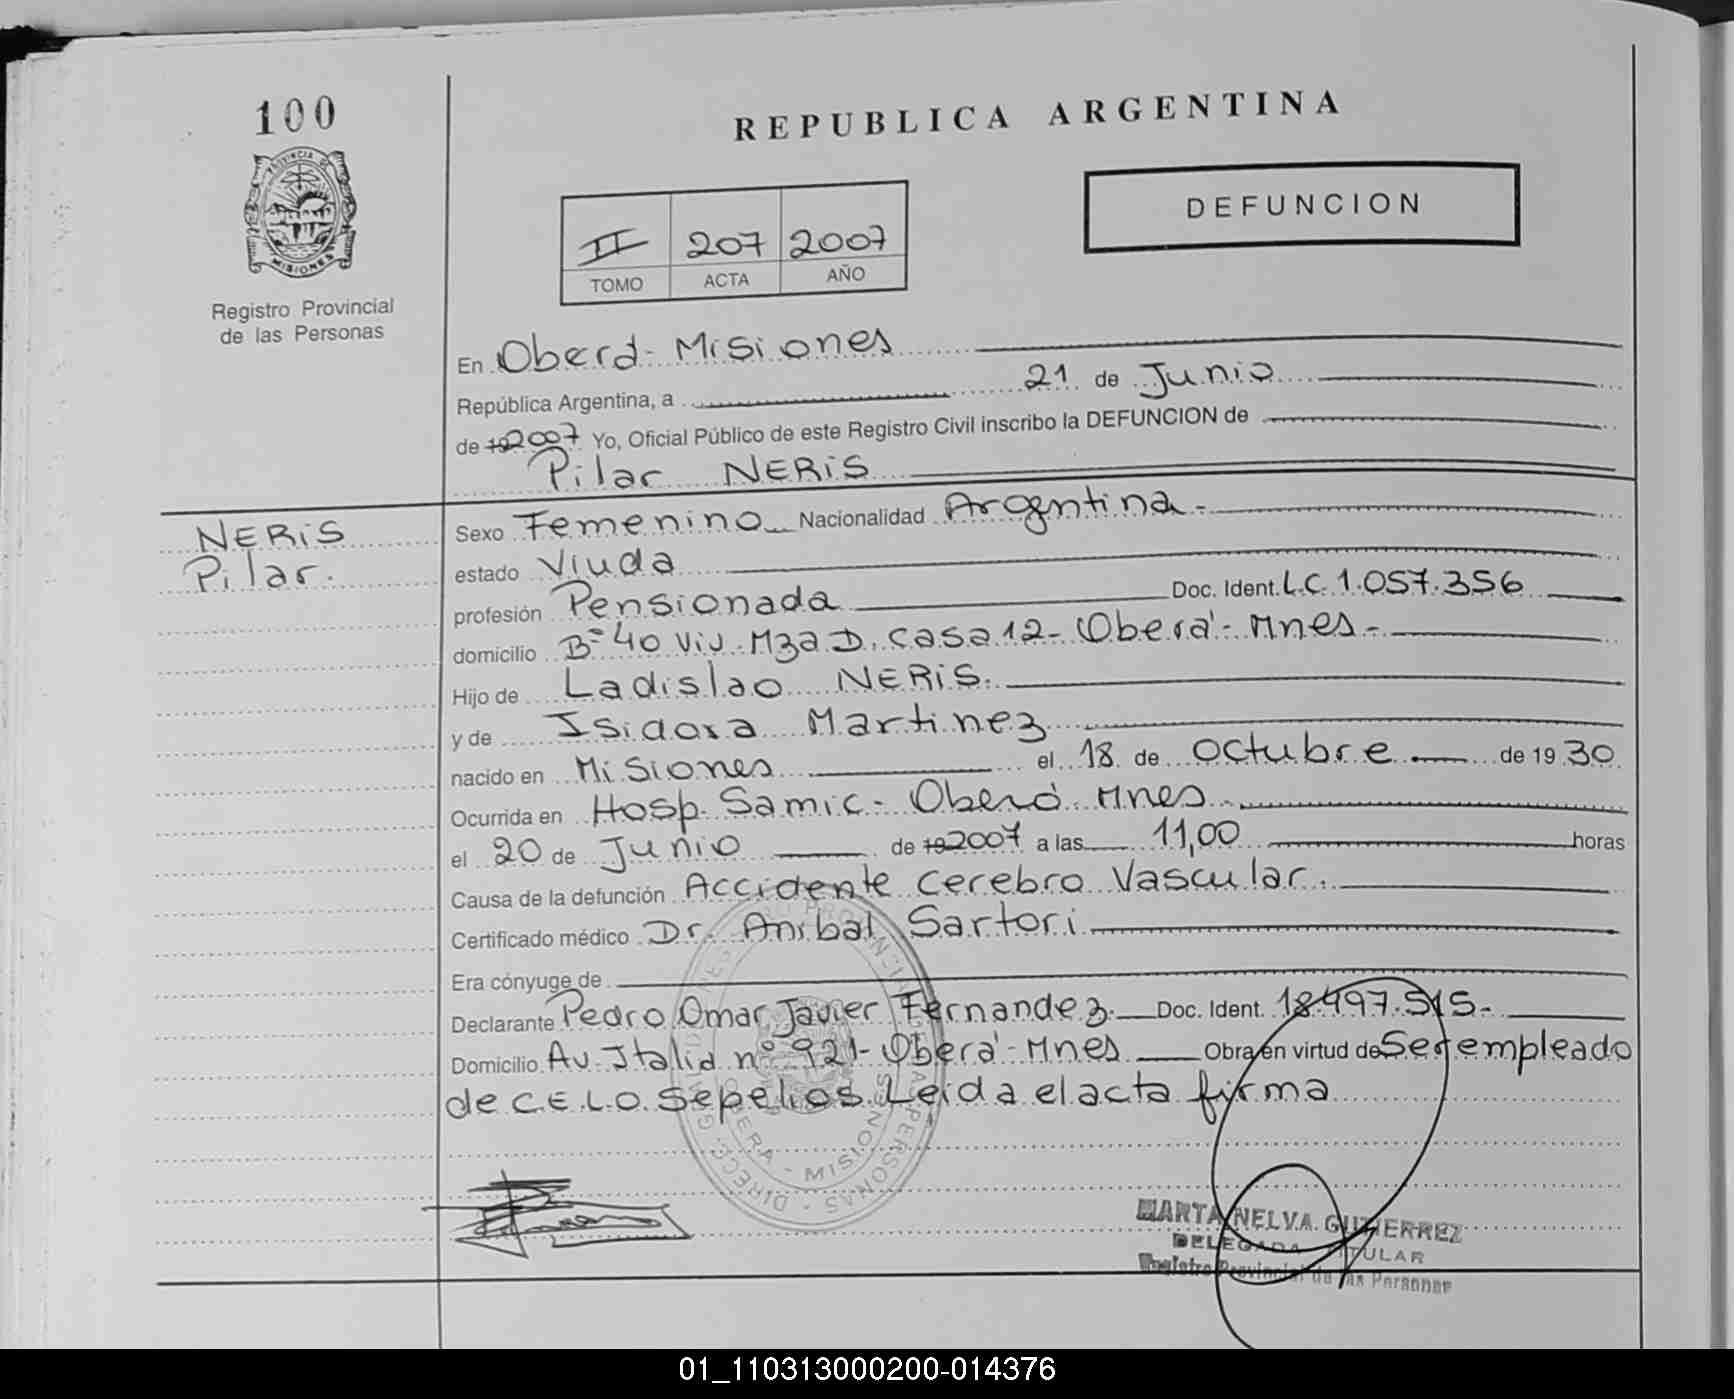 100
REPUBLICA ARGENTINA
DEFUNCION
PROVINCIA DE
MISIONES
II 207 2007
TOMO ACTA AÑO
Registro Provincial
de las Personas
En Oberá - Misiones
República Argentina, a 21 de Junio
de 192007 Yo, Oficial Público de este Registro Civil inscribo la DEFUNCION de
Pilar NERIS
NERIS
Pilar.
Sexo Femenino Nacionalidad Argentina -
estado Viuda
profesión Pensionada Doc. Ident. L.C. 1.057.356
domicilio B= 40 Viv. Mza D. casa 12 - Oberá - Mnes -
Hijo de Ladislao NERIS.
y de Isidora Martinez
nacido en Misiones el 18 de octubre de 1930
Ocurrida en Hosp. Samic - Oberá - Mnes
el 20 de Junio de 192007 a las 11,00 horas
Causa de la defunción Accidente Cerebro Vascular.
Certificado médico Dr. Anibal Sartori
Era cónyuge de
Declarante Pedro Omar Javier Fernandez. Doc. Ident. 18.497.515 -
Domicilio Av. Italia nº 921 - Oberá - Mnes Obra en virtud de Ser empleado
de C.E.L.O. Sepelios. Leida el acta firma
OBERA - MISIONES
MARTA NELVA GUTIERREZ
DELEGADA TITULAR
Registro Provincial de las Personas
01_110313000200-014376